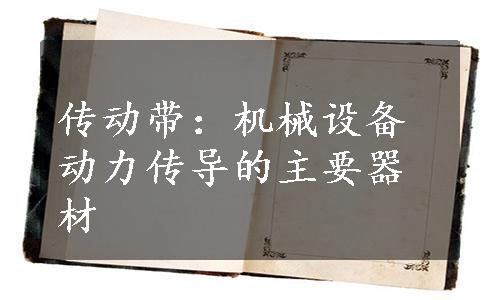 传动带：机械设备
动力传导的主要器
材